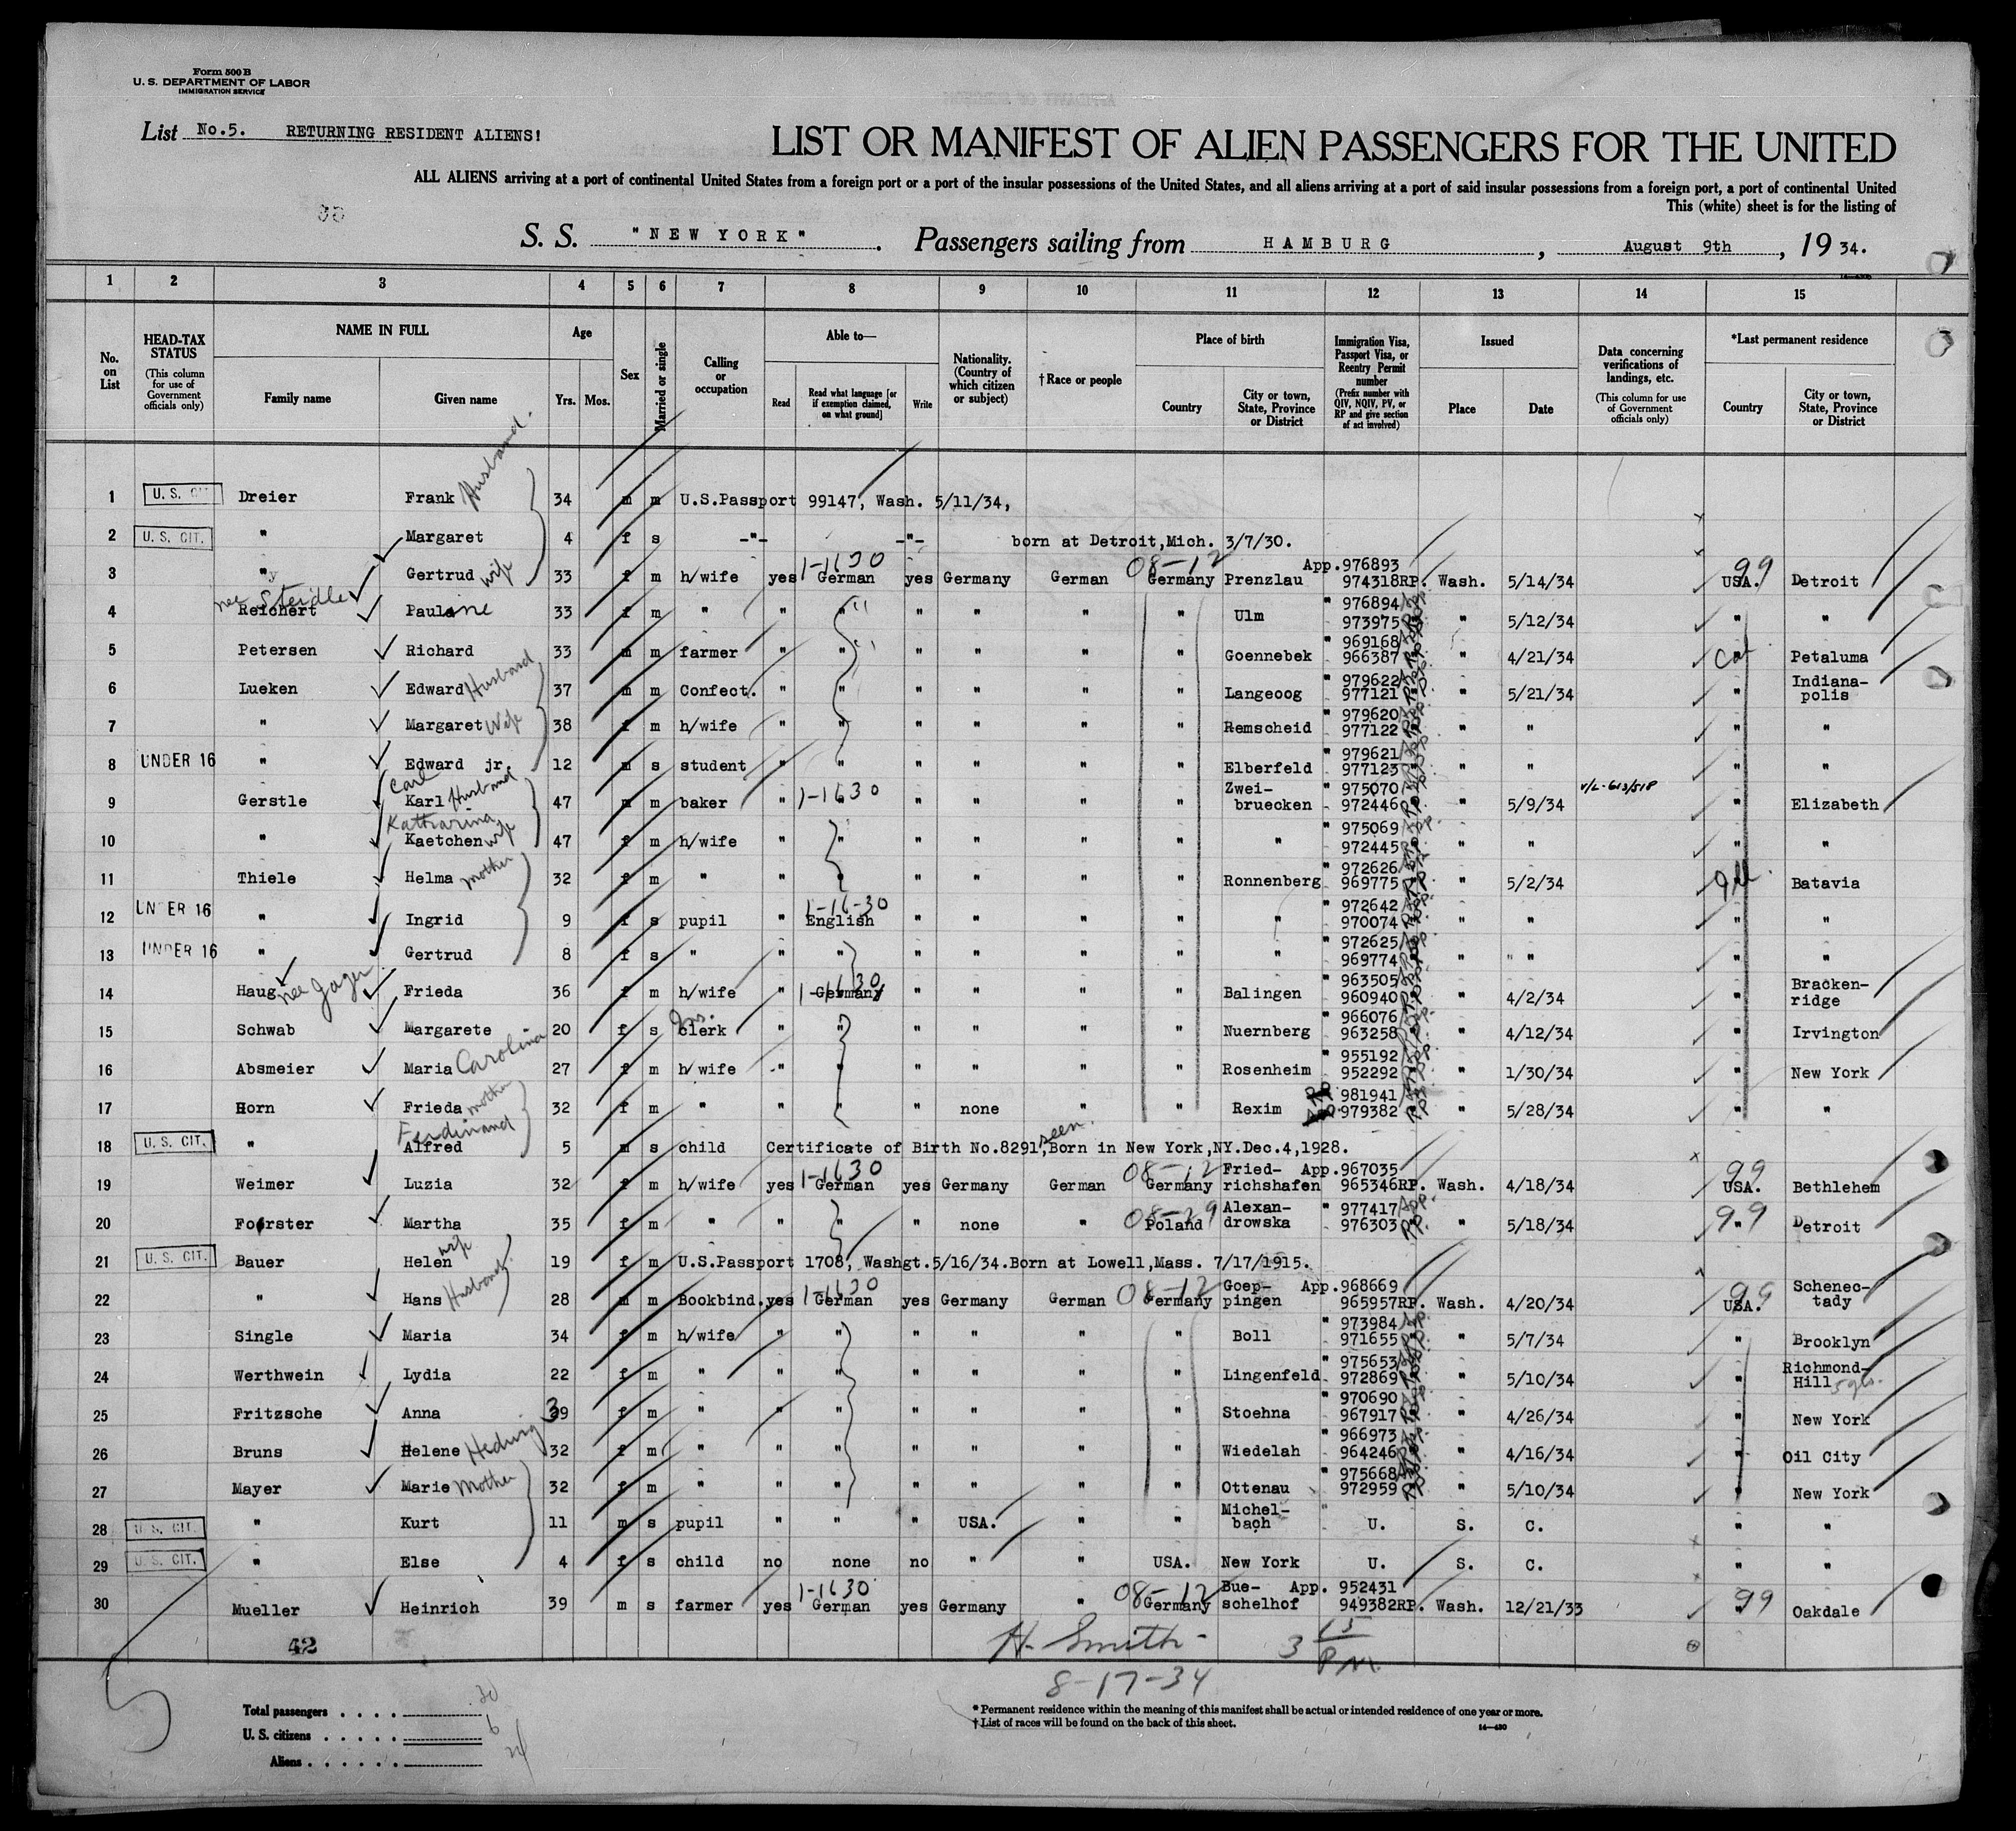 Form 500 B
U. S. DEPARTMENT OF LABOR
IMMIGRATION SERVICE
List No.5. RETURNING RESIDENT ALIENS!
LIST OR MANIFEST OF ALIEN PASSENGERS FOR THE UNITED
ALL ALIENS arriving at a port of continental United States from a foreign port or a port of the insular possessions of the United States, and all aliens arriving at a port of said insular possessions from a foreign port, a port of continental United
This (white) sheet is for the listing of
S. S. "NEW YORK". Passengers sailing from HAMBURG, August 9th, 1934.
1 2 3 4 5 6 7 8 9 10 11 12 13 14 15
No. on List
HEAD-TAX STATUS (This column for use of Government officials only)
NAME IN FULL Family name Given name
Age Yrs. Mos.
Sex
Married or single
Calling or occupation
Able to— Read Read what language [or if exemption claimed, on what ground] Write
Nationality. (Country of which citizen or subject)
† Race or people
Place of birth Country City or town, State, Province or District
Immigration Visa, Passport Visa, or Reentry Permit number (Prefix number with QIV, NQIV, PV, or RP and give section of act involved)
Issued Place Date
Data concerning verifications of landings, etc. (This column for use of Government officials only)
*Last permanent residence Country City or town, State, Province or District
1 U. S. CIT. Dreier Frank Husband 34 m m U.S.Passport 99147, Wash. 5/11/34,
2 U. S. CIT. " Margaret 4 f s -"- -"- born at Detroit,Mich. 3/7/30.
3 " Gertrud wife 33 f m h/wife yes 1-1630 German yes Germany German 08-12 Germany Prenzlau App.976893 974318RP. Wash. 5/14/34 99 USA. Detroit
4 nee Steidle Reichert Pauline 33 f m " " " " " " " Ulm " 976894 973975 " 5/12/34 " "
5 Petersen Richard 33 m m farmer " " " " " " Goennebek " 969168 966387 " 4/21/34 Cal " Petaluma
6 Lueken Edward Husband 37 m m Confect. " " " " " " Langeoog " 979622 977121 " 5/21/34 " Indiana- polis
7 " Margaret Wife 38 f m h/wife " " " " " " Remscheid " 979620 977122 " " " "
8 UNDER 16 " Edward jr. 12 m s student " " " " " " Elberfeld " 979621 977123 " " " "
9 Gerstle Carl Karl Husband 47 m m baker " 1-1630 " " " " Zwei- bruecken " 975070 972446 " 5/9/34 V/L-613/518 " Elizabeth
10 " Katharina Kaetchen wife 47 f m h/wife " " " " " " " " 975069 972445 " " " "
11 Thiele Helma mother 32 f m " " " " " " " Ronnenberg " 972626 969775 " 5/2/34 Ill. Batavia
12 UNDER 16 " Ingrid 9 f s pupil " 1-16-30 English " " " " " " 972642 970074 " " " "
13 UNDER 16 " Gertrud 8 f s " " " " " " " " " 972625 969774 " " " " "
14 Haug nee Jager Frieda 36 f m h/wife " 1-1630 Germany " " " " Balingen " 963505 960940 " 4/2/34 " Bracken- ridge
15 Schwab Margarete 20 f s Ins. clerk " " " " " " Nuernberg " 966076 963258 " 4/12/34 " Irvington
16 Absmeier Maria Carolina 27 f m h/wife " " " " " " Rosenheim " 955192 952292 " 1/30/34 " New York
17 Horn Frieda mother 32 f m " " " " none " " Rexim 981941 979382 " 5/28/34 " "
18 U. S. CIT. " Ferdinand Alfred 5 m s child Certificate of Birth No.8291, seen. Born in New York,NY.Dec.4,1928.
19 Weimer Luzia 32 f m h/wife yes 1-1630 German yes Germany German 08-12 Germany Fried- richshafen App.967035 965346RP. Wash. 4/18/34 99 USA. Bethlehem
20 Foerster Martha 35 f m " " " " none " 08-29 Poland Alexan- drowska " 977417 976303 " 5/18/34 99 " Detroit
21 U. S. CIT. Bauer Helen wife 19 f m U.S.Passport 1708, Washgt.5/16/34.Born at Lowell,Mass. 7/17/1915.
22 " Hans Husband 28 m m Bookbind. yes 1-1630 German yes Germany German 08-12 Germany Goep- pingen App.968669 965957RP. Wash. 4/20/34 99 USA. Schenec- tady
23 Single Maria 34 f m h/wife " " " " " " Boll " 973984 971655 " 5/7/34 " Brooklyn
24 Werthwein Lydia 22 f m " " " " " " " Lingenfeld " 975653 972869 " 5/10/34 " Richmond- Hill
25 Fritzsche Anna 39 f m " " " " " " " Stoehna " 970690 967917 " 4/26/34 " New York
26 Bruns Helene Hedwig 32 f m " " " " " " " Wiedelah " 966973 964246 " 4/16/34 " Oil City
27 Mayer Marie Mother 32 f m " " " " " " " Ottenau " 975668 972959 " 5/10/34 " New York
28 U. S. CIT. " Kurt 11 m s pupil " " " USA. " " Michel- bach " U. S. C. " "
29 U. S. CIT. " Else 4 f s child no none no " " USA. New York U. S. C. " "
30 Mueller Heinrich 39 m s farmer yes 1-1630 German yes Germany " 08-12 Germany Bue- schelhof App. 952431 949382RP. Wash. 12/21/33 99 " Oakdale
42
H. Smith
8-17-34
3 15 P M.
Total passengers . . . . 30
U. S. citizens . . . . . 6
Aliens . . . . . . 24
* Permanent residence within the meaning of this manifest shall be actual or intended residence of one year or more.
† List of races will be found on the back of this sheet.
14—430